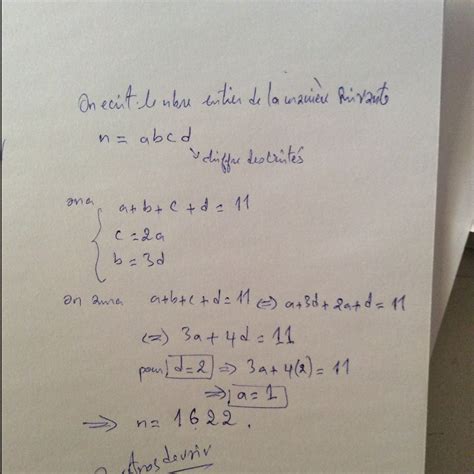 On ecrit le nbre entier de la manière suivante
n = abcd
↘ chiffre des unités
on a
{ a+b+c+d = 11
c = 2a
b = 3d
on aura a+b+c+d = 11 (=) a+3d+2a+d = 11
(=) 3a + 4d = 11
pour d=2 ⇒ 3a + 4(2) = 11
⇒ a = 1
⇒ n = 1622.